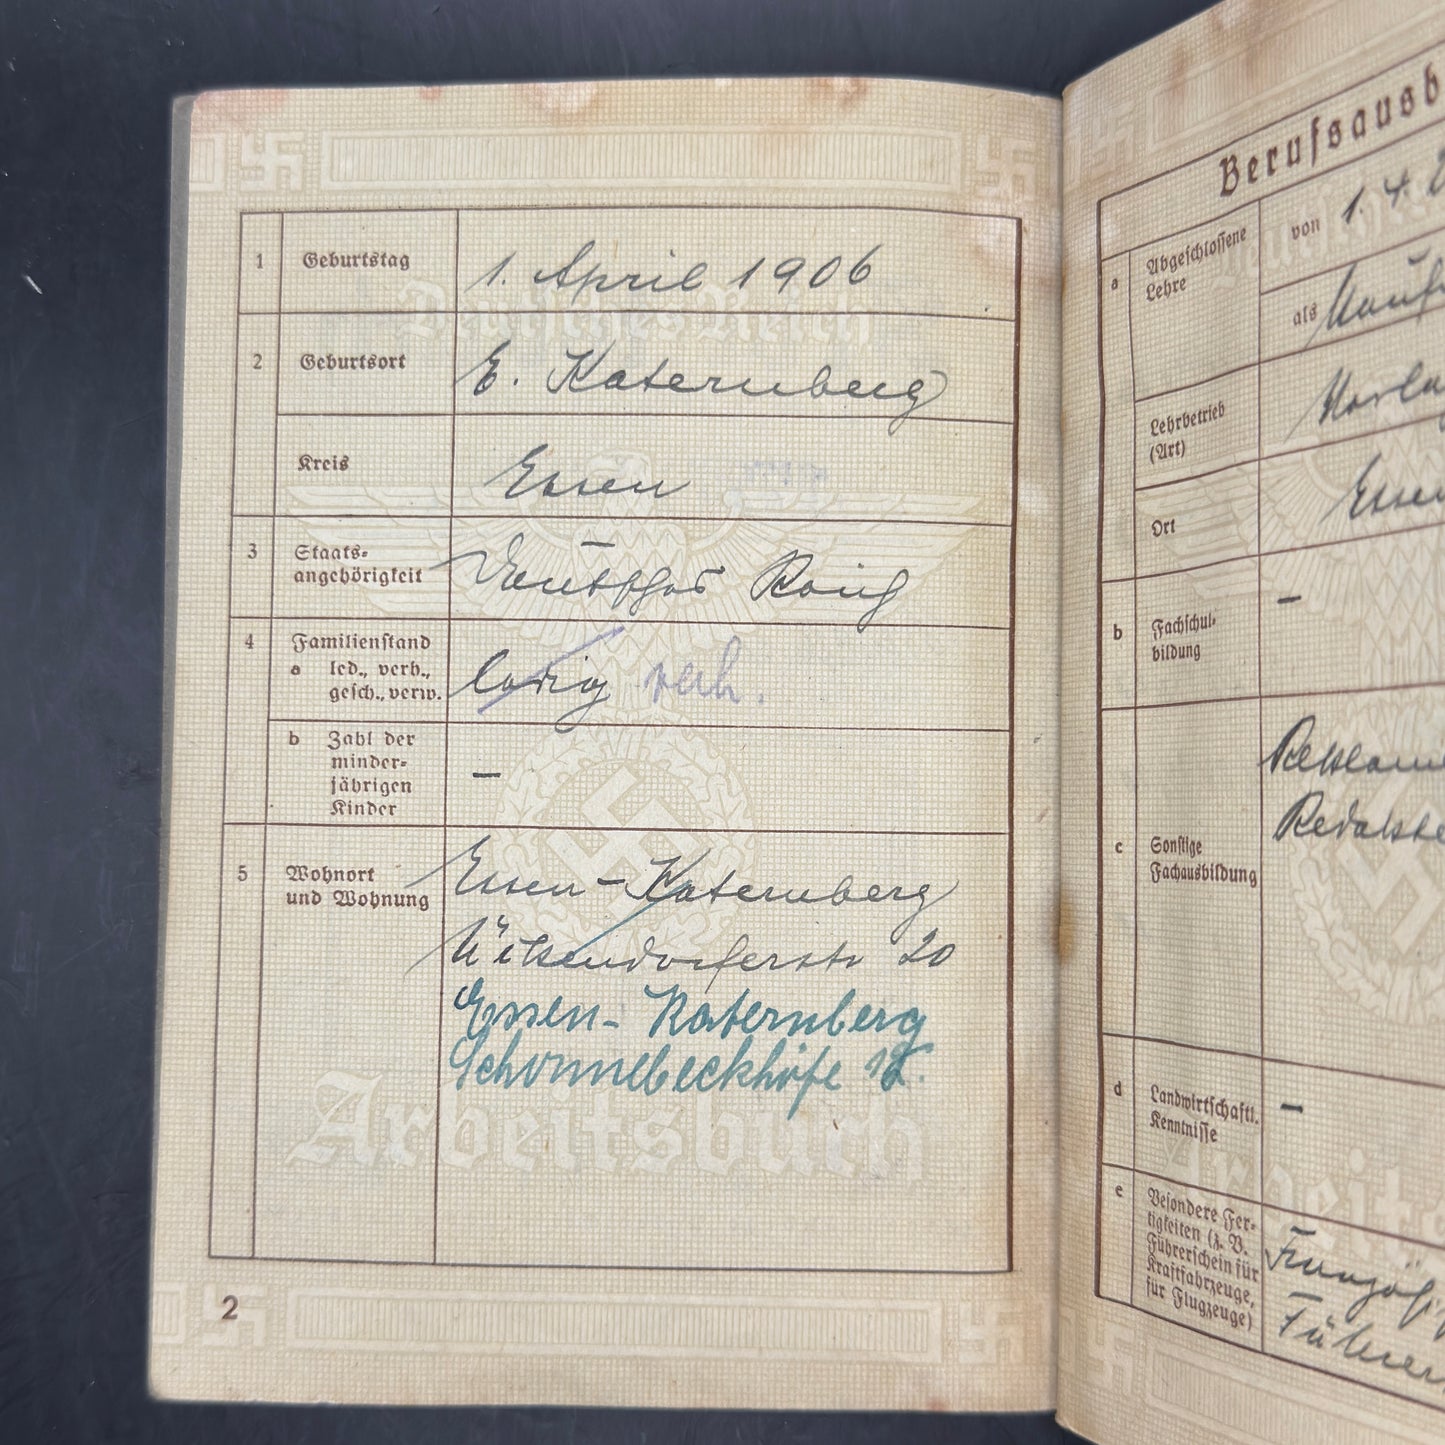 1 Geburtstag 1. April 1906
Deutsches Reich
2 Geburtsort E. Katernberg
Kreis Essen
3 Staats-
angehörigkeit Deutsches Reich
4 Familienstand
a led., verh.,
gesch., verw. ledig verh.
b Zahl der
minder-
jährigen
Kinder –
5 Wohnort
und Wohnung
Essen-Katernberg
Ückendorferstr 20
Essen-Katernberg
Schonnebeckhöfe
Arbeitsbuch
2
Berufsausb
a Abgeschlossene
Lehre
von 1.4.
als
Lehrbetrieb
(Art)
Ort Essen
b Fachschul-
bildung –
c Sonstige
Fachausbildung
Reklame
d Landwirtschaftl.
Kenntnisse –
e Besondere Fer-
tigkeiten (z. B.
Führerschein für
Kraftfahrzeuge,
für Flugzeuge)